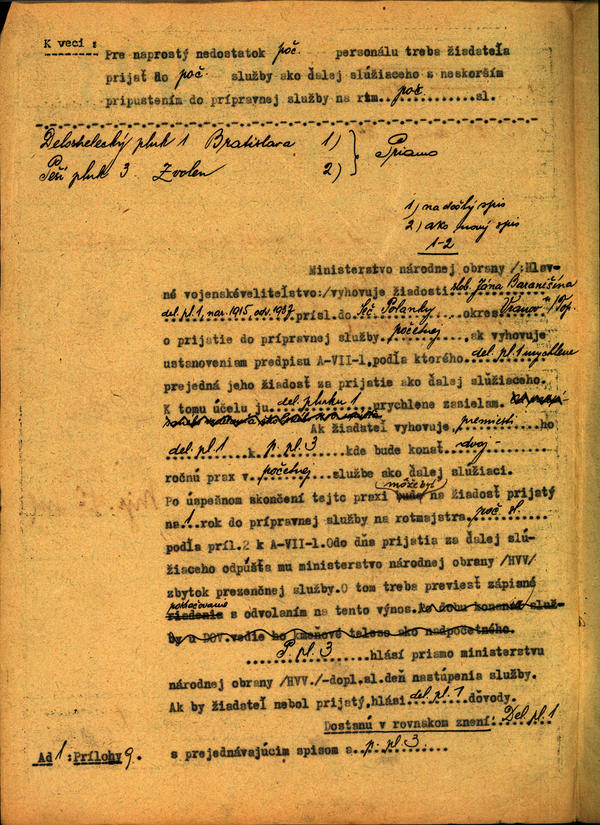 K veci :
Pre naprostý nedostatok poč. personálu treba žiadateľa
prijať do poč. služby ako ďalej slúžiaceho s neskorším
pripustením do prípravnej služby na rtm. poč. sl.
Delostrelecký pluk 1 Bratislava 1)
Peší pluk 3 Zvolen 2)
Priamo
1) na došlý spis
2) ako nový spis
1-2
Ministerstvo národnej obrany /:Hlav-
né vojenské veliteľstvo:/ vyhovuje žiadosti slob. Jána Baranišina
del. pl. 1, nar. 1915, odv. 1937 prísl. do Kč. Polanky okres Vranov n/Top.
o prijatie do prípravnej služby početnej ak vyhovuje
ustanoveniam predpisu A-VII-1, podľa ktorého del. pl. 1 urychlene
prejedná jeho žiadosť za prijatie ako ďalej slúžiaceho.
K tomu účelu ju del. pluku 1 urychlene zasielam.
Ak žiadateľ vyhovuje, premiesti ho
del. pl. 1 k p. pl. 3 kde bude konať dvoj-
ročnú prax v početnej službe ako ďalej slúžiaci.
Po úspešnom skončení tejto praxi bude môže byť na žiadosť prijatý
na 1 rok do prípravnej služby na rotmajstra poč. sl.
podľa príl. 2 k A-VII-1. Odo dňa prijatia za ďalej slú-
žiaceho odpúšťa mu ministerstvo národnej obrany /HVV/
zbytok prezenčnej služby. O tom treba previesť zápisné
pokračovanie
riadenie s odvolaním na tento výnos. Po dobu konania služ-
by u DOV. vedie ho kmeňové teleso ako nadpočetného.
P. pl. 3 hlási priamo ministerstvu
národnej obrany /HVV./-dopl. sl. deň nastúpenia služby.
Ak by žiadateľ nebol prijatý, hlási del. pl. 1 dôvody.
Dostanú v rovnakom znení: Del. pl. 1
s prejednávajúcim spisom a p. pl. 3
Ad 1 : Prílohy 9.